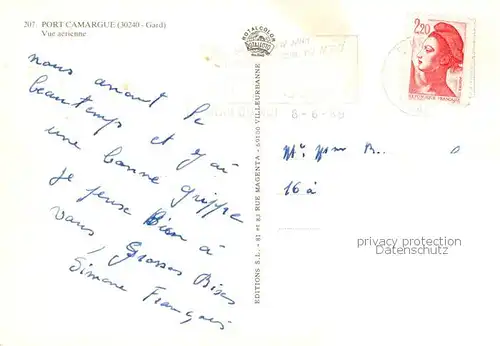 207. PORT CAMARGUE (30240 - Gard)
Vue aérienne
nous avons le
beau temps et j'ai
une bonne grippe
Je pense Bien à
vous, Grosses Bises
Simone François
ROTALCOLOR
EDITIONS S.L. - 81 et 83 RUE MAGENTA - 69100 VILLEURBANNE
2,20
REPUBLIQUE FRANÇAISE
16 à
privacy protection
Datenschutz